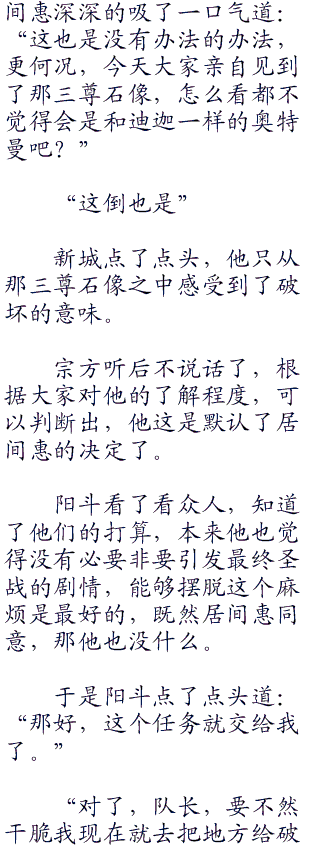 间惠深深的吸了一口气道：
“这也是没有办法的办法，
更何况，今天大家亲自见到
了那三尊石像，怎么看都不
觉得会是和迪迦一样的奥特
曼吧？”
“这倒也是”
新城点了点头，他只从
那三尊石像之中感受到了破
坏的意味。
宗方听后不说话了，根
据大家对他的了解程度，可
以判断出，他这是默认了居
间惠的决定了。
阳斗看了看众人，知道
了他们的打算，本来他也觉
得没有必要非要引发最终圣
战的剧情，能够摆脱这个麻
烦是最好的，既然居间惠同
意，那他也没什么。
于是阳斗点了点头道：
“那好，这个任务就交给我
了。”
“对了，队长，要不然
干脆我现在就去把地方给破